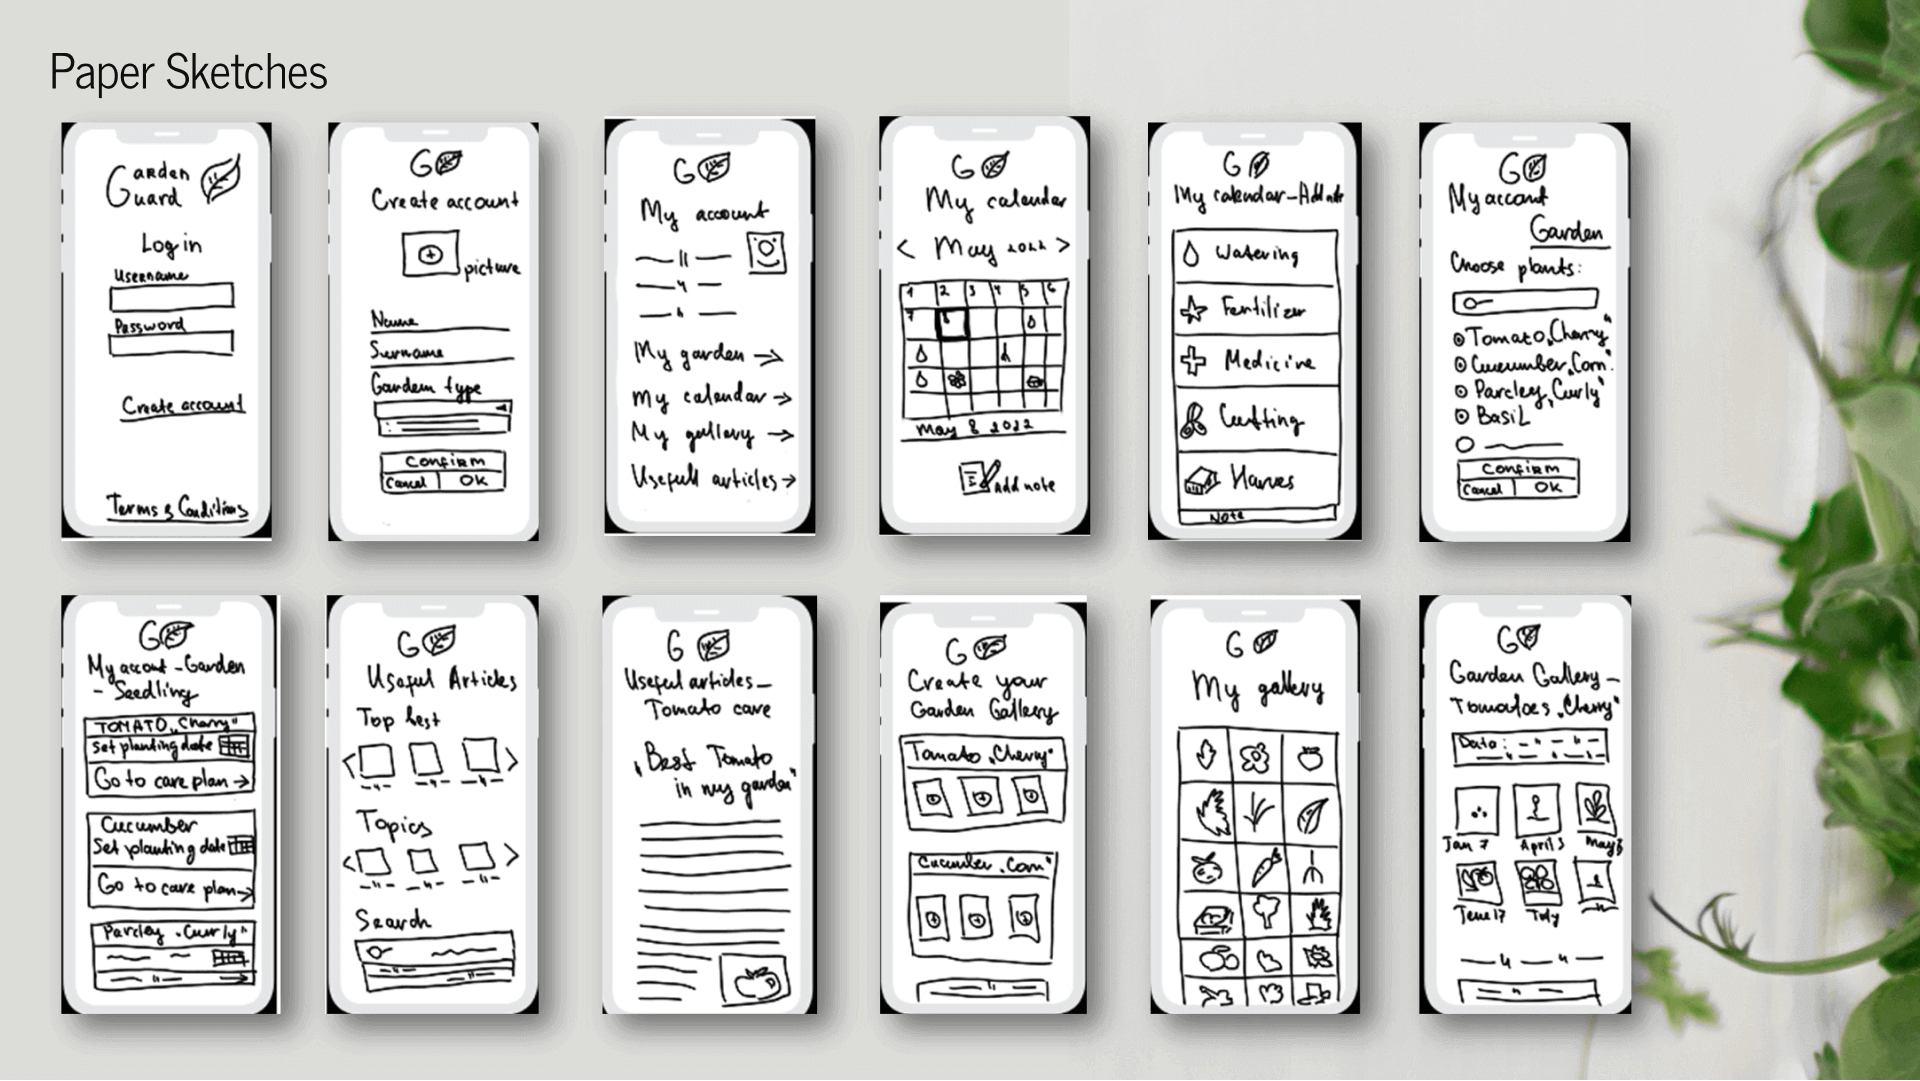 Paper Sketches
Garden
Guard
Log in
Username
Password
Create account
Terms & Conditions
G
Create account
picture
Name
Surname
Garden type
Confirm
Cancel
OK
G
My account
My garden →
My calendar →
My gallery →
Usefull articles →
G
My calendar
< May 2022 >
1 2 3 4 5 6
7
May 8 2022
Add note
G
My calendar - Add note
Watering
Fertilizer
Medicine
Cutting
Harves
Note
G
My accont
Garden
Choose plants:
Tomato „Cherry"
Cucumber „Corn"
Parcley „Curly"
Basil
Confirm
Cancel
OK
G
My accont - Garden
- Seedling
TOMATO „Cherry"
Set planting date
Go to care plan →
Cucumber
Set planting date
Go to care plan →
Parcley „Curly"
G
Useful Articles
Top best
Topics
Search
G
Useful articles -
Tomato care
„Best Tomato
in my garden"
G
Create your
Garden Gallery
Tomato „Cherry"
Cucumber „Corn"
G
My gallery
G
Garden Gallery -
Tomatoes „Cherry"
Data:
Jan 7
April 3
May 3
June 17
July